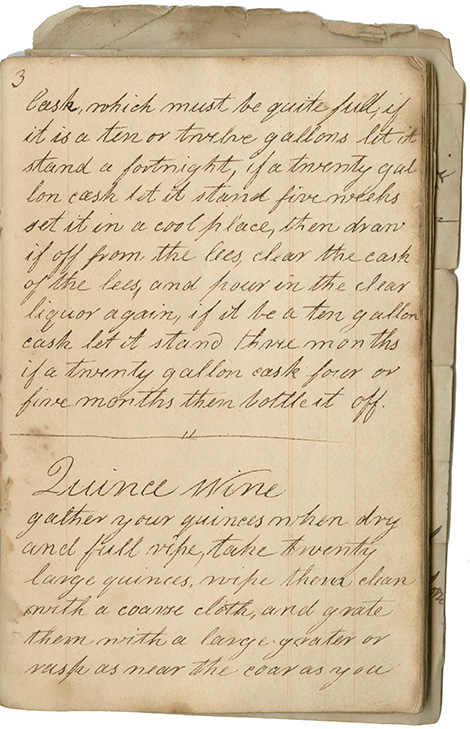 3
Cask, which must be quite full, if
it is a ten or twelve gallons let it
stand a fortnight, if a twenty gal
lon cask let it stand five weeks
set it in a cool place, then draw
if off from the lees, clear the cask
of the lees, and pour in the clear
liquor again, if it be a ten gallon
cask let it stand three months
if a twenty gallon cask four or
five months then bottle it off.
Quince Wine
gather your quinces when dry
and full ripe, take twenty
large quinces, wipe them clean
with a coarse cloth, and grate
them with a large grater or
rasp as near the coar as you